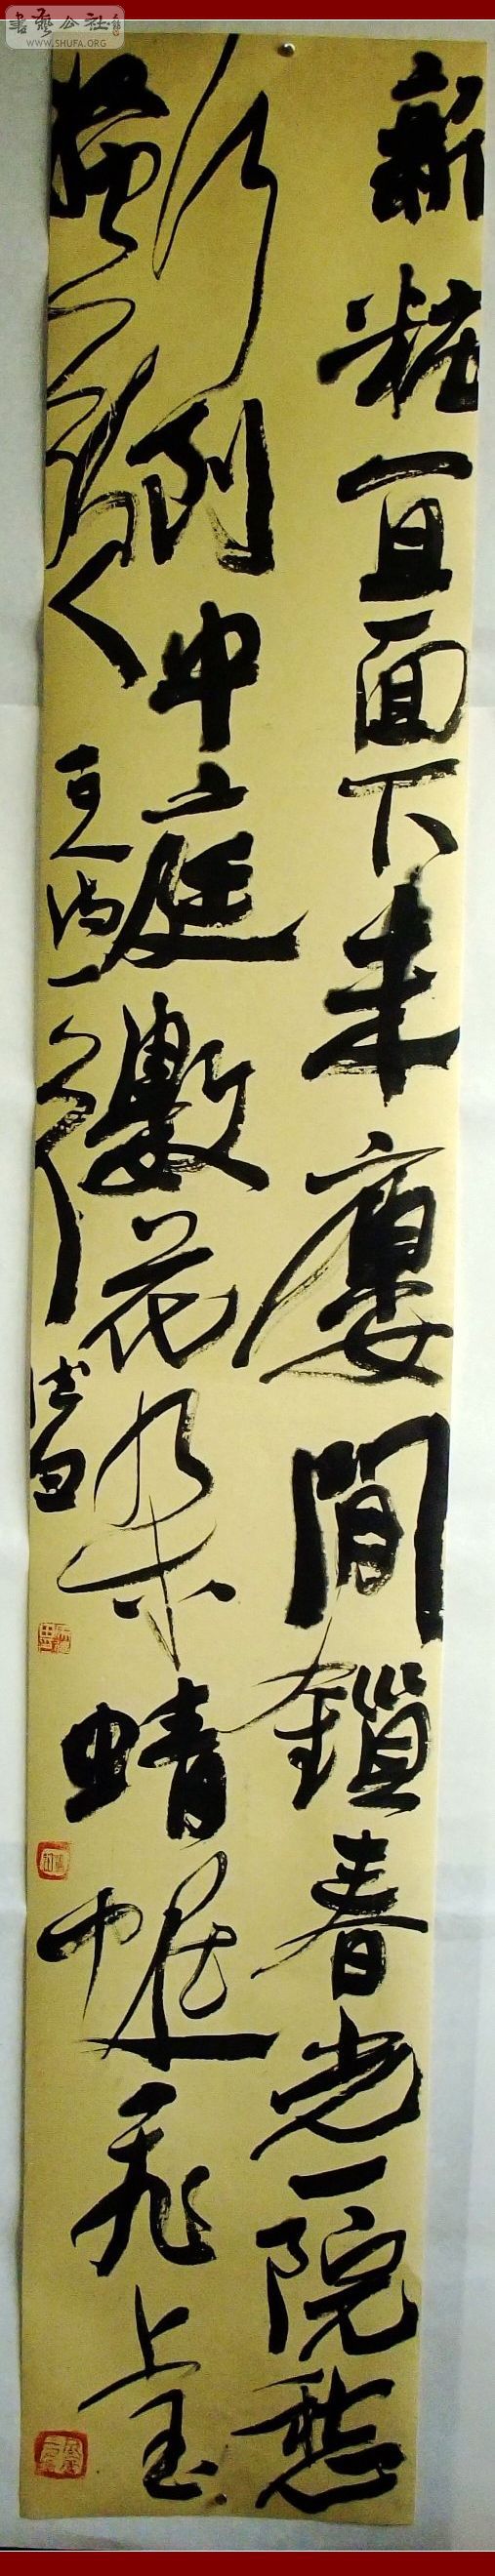 書藝公社
WWW.SHUFA.ORG
新粧宜面下朱廔閒鎖春光一院愁
行到中庭數花朵蜻蜓飛上玉
搔頭